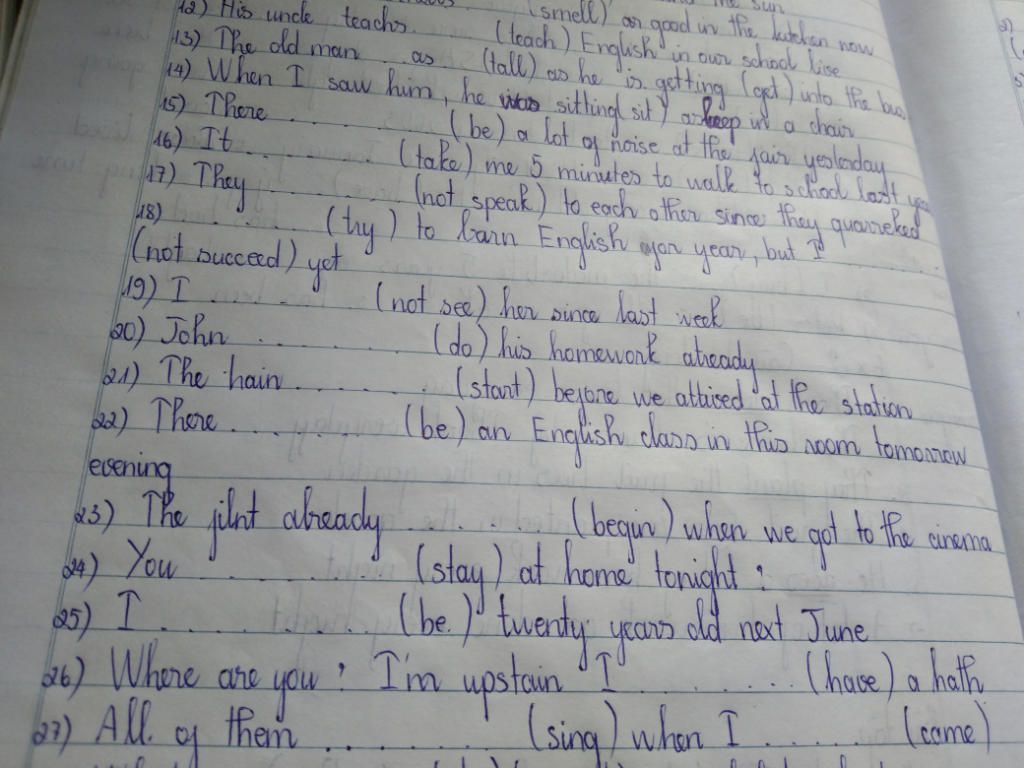 the sun
(smell) so good in the kitchen now
12) His uncle teachs. (teach) English in our school
13) The old man as (tall) as he is getting (get) into the bus
14) When I saw him, he was sitting (sit) asleep in a chair
15) There ......... (be) a lot of noise at the fair yesterday
16) It ......... (take) me 5 minutes to walk to school last year
17) They ......... (not speak) to each other since they quarreked
18) ......... (try) to learn English for year, but I .....
(not succeed) yet
19) I ......... (not see) her since last week
20) John ......... (do) his homework already
21) The train ......... (start) before we attived at the station
22) There ......... (be) an English class in this room tomorrow
evening
23) The film already ...... (begin) when we got to the cinema
24) You ......... (stay) at home tonight ?
25) I ......... (be) twenty years old next June
26) Where are you ? I'm upstain I ......... (have) a bath
27) All of them ......... (sing) when I ...... (came)